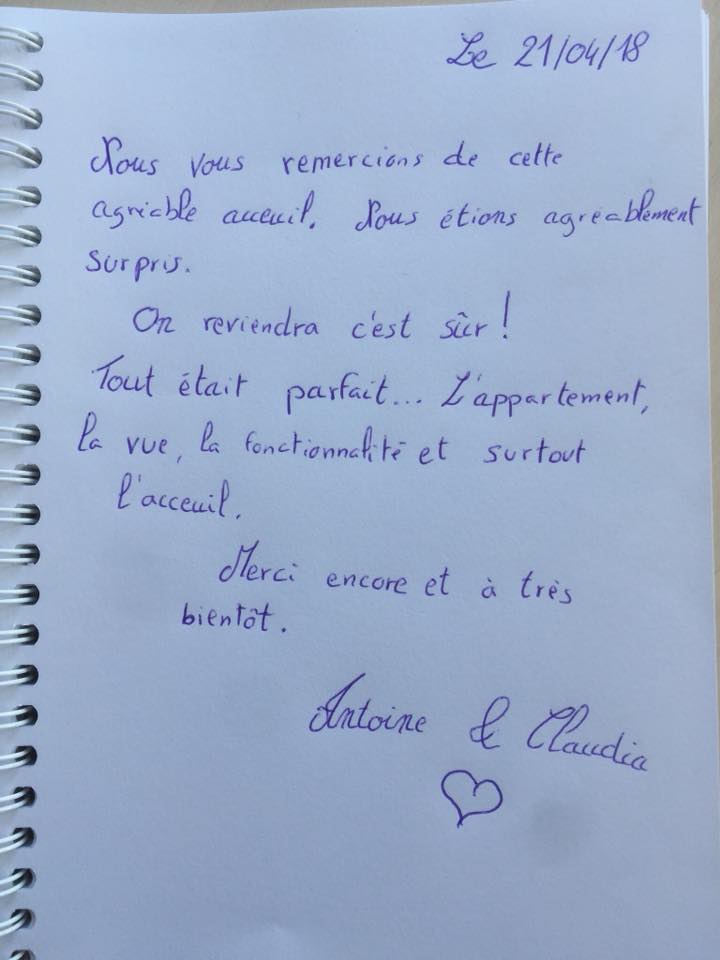 Le 21/04/18
Nous vous remercions de cette
agréable acceuil. Nous étions agréablement
surpris.
On reviendra c'est sûr !
Tout était parfait... L'appartement,
la vue, la fonctionnalité et surtout
l'acceuil.
Merci encore et à très
bientôt.
Antoine & Claudia